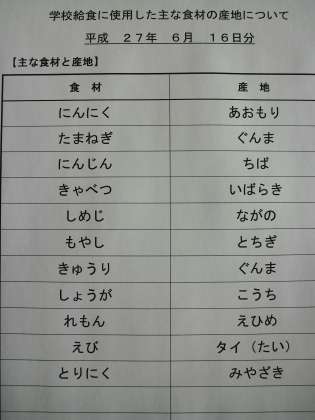 学校給食に使用した主な食材の産地について
平成　２７年　６月　１６日分
【主な食材と産地】
食　材　産　地
にんにく　あおもり
たまねぎ　ぐんま
にんじん　ちば
きゃべつ　いばらき
しめじ　ながの
もやし　とちぎ
きゅうり　ぐんま
しょうが　こうち
れもん　えひめ
えび　タイ（たい）
とりにく　みやざき